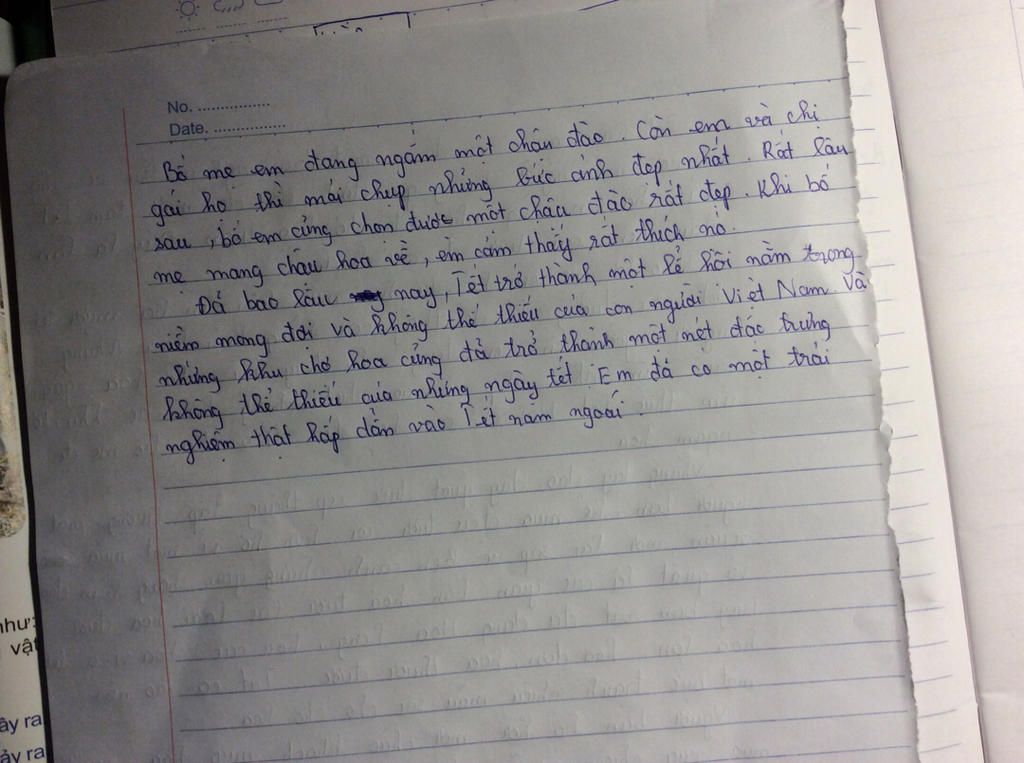 No. ................
Date. ................
Bố mẹ em đang ngắm một chân đào. Còn em và chị
gái họ thì mải chụp những bức ảnh đẹp nhất. Rất lâu
sau, bố em cũng chọn được một chậu đào rất đẹp. Khi bố
mẹ mang chậu hoa về, em cảm thấy rất thích nó.
Đã bao lâu nay, Tết trở thành một lễ hội nằm trong
niềm mong đợi và không thể thiếu của con người Việt Nam Và
những khu chợ hoa cũng đã trở thành một nét đặc trưng
không thể thiếu của những ngày tết. Em đã có một trải
nghiệm thật hấp dẫn vào Tết năm ngoái.
như:
vật
ây ra
ảy ra